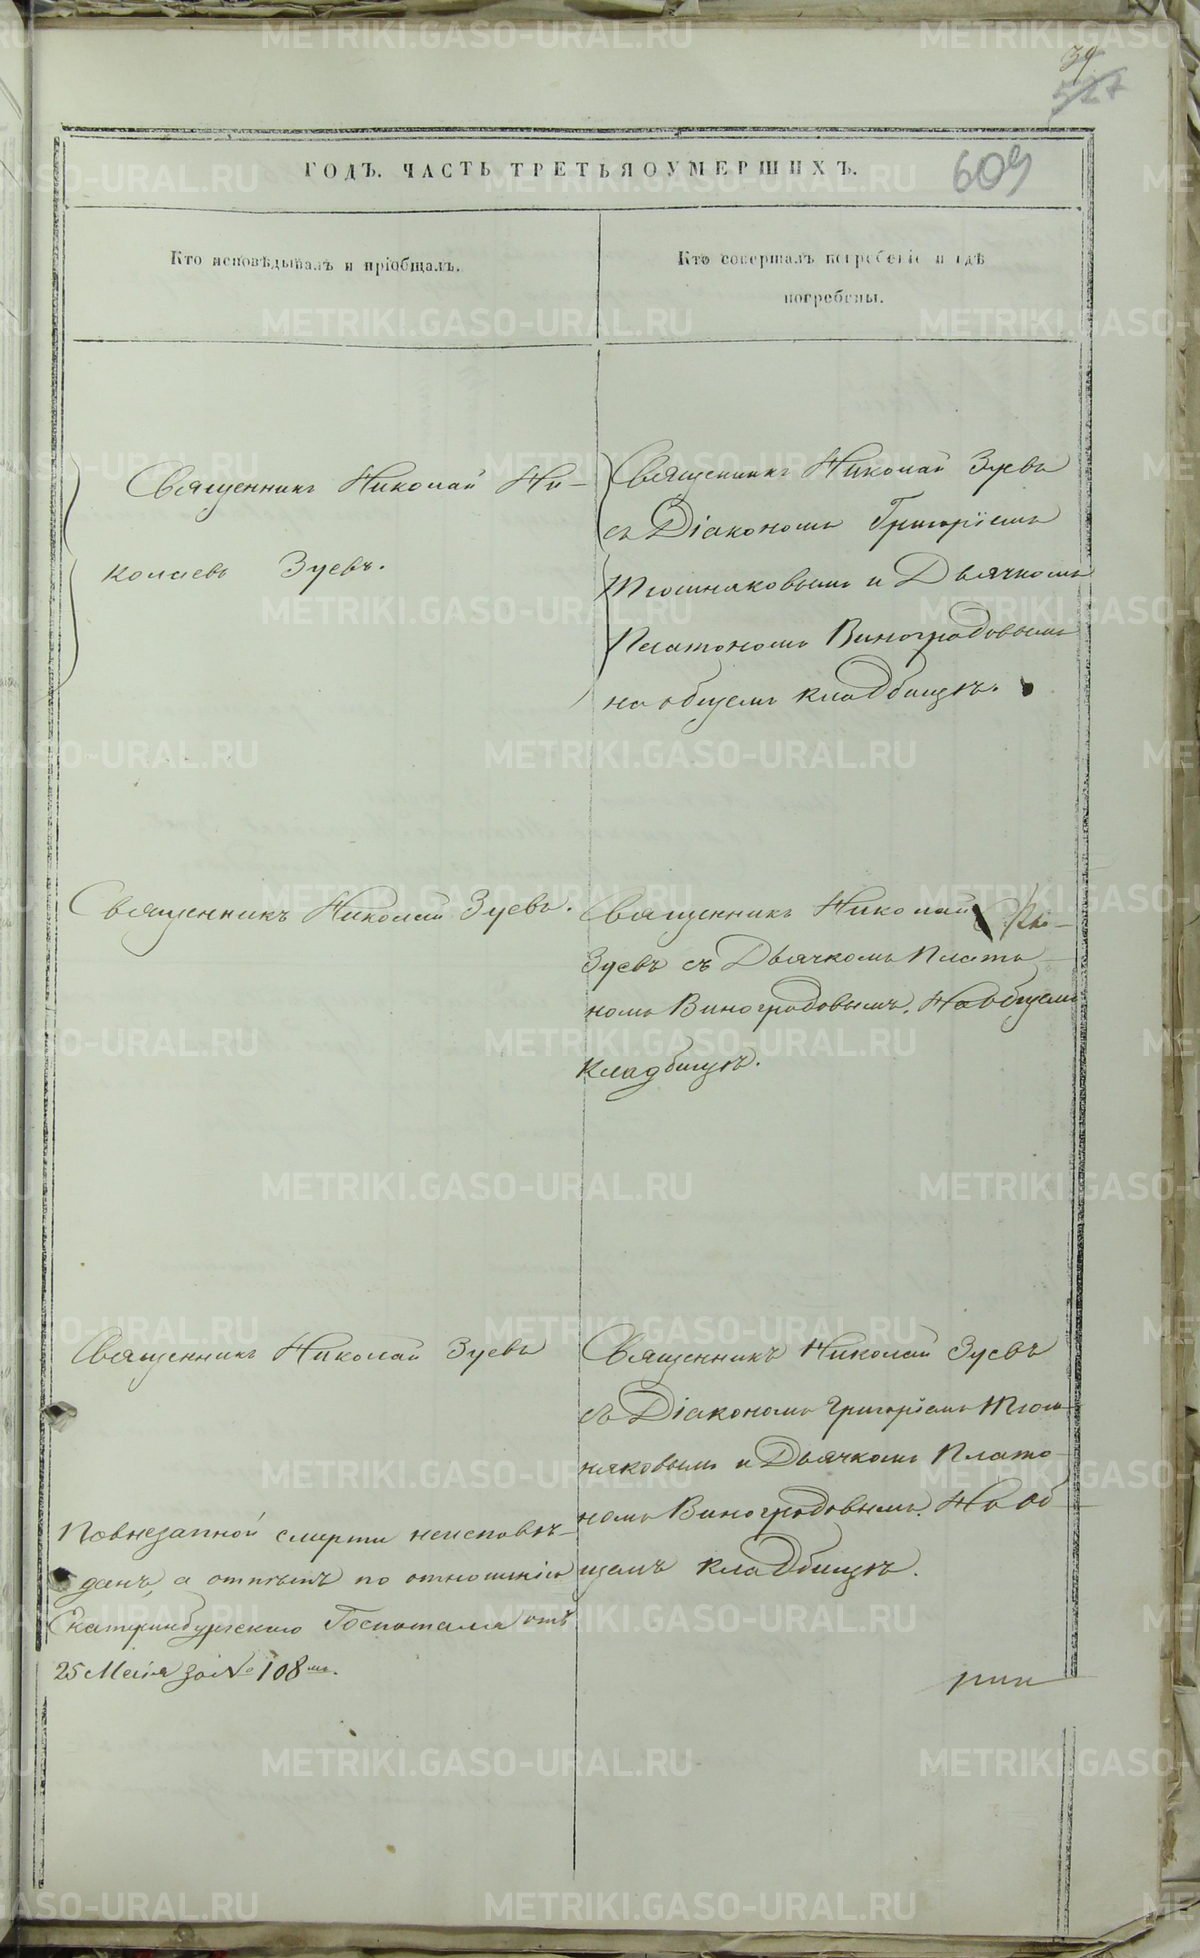 39
527
609
ГОДЪ. ЧАСТЬ ТРЕТЬЯ О УМЕРШИХЪ.
Кто исповѣдывалъ и пріобщалъ.
Кто совершалъ погребеніе и гдѣ
погребены.
Священникъ Николай Ни-
колаевъ Зуевъ.
Священникъ Николай Зуевъ
съ Діакономъ Григоріемъ
Тюшняковымъ и Дьячкомъ
Платономъ Виноградовымъ
на общемъ кладбищѣ.
Священникъ Николай Зуевъ.
Священникъ Николай
Зуевъ съ Дьячкомъ Плато-
номъ Виноградовымъ. На общемъ
кладбищѣ.
Священникъ Николай Зуевъ
Священникъ Николай Зуевъ
съ Діакономъ Григоріемъ Тюш-
няковымъ и Дьячкомъ Плато-
номъ Виноградовымъ. На об-
щемъ кладбищѣ.
По внезапной смерти неисповѣ-
данъ, а отпѣтъ по отношенію
Екатеринбургскаго Госпиталя отъ
25 Маія за № 108мъ.
METRIKI.GASO-URAL.RU